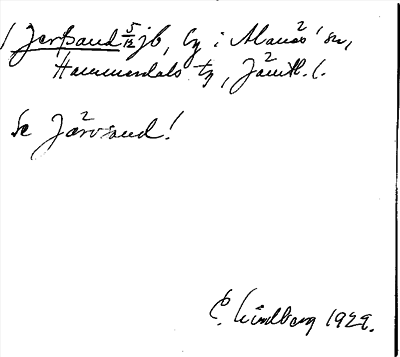 Jarßaud 5/12 jb, by i Alanäs' sn,
Hammerdals tg, Jämtl. l.
Se Järvsand!
C. Lindberg 1929.